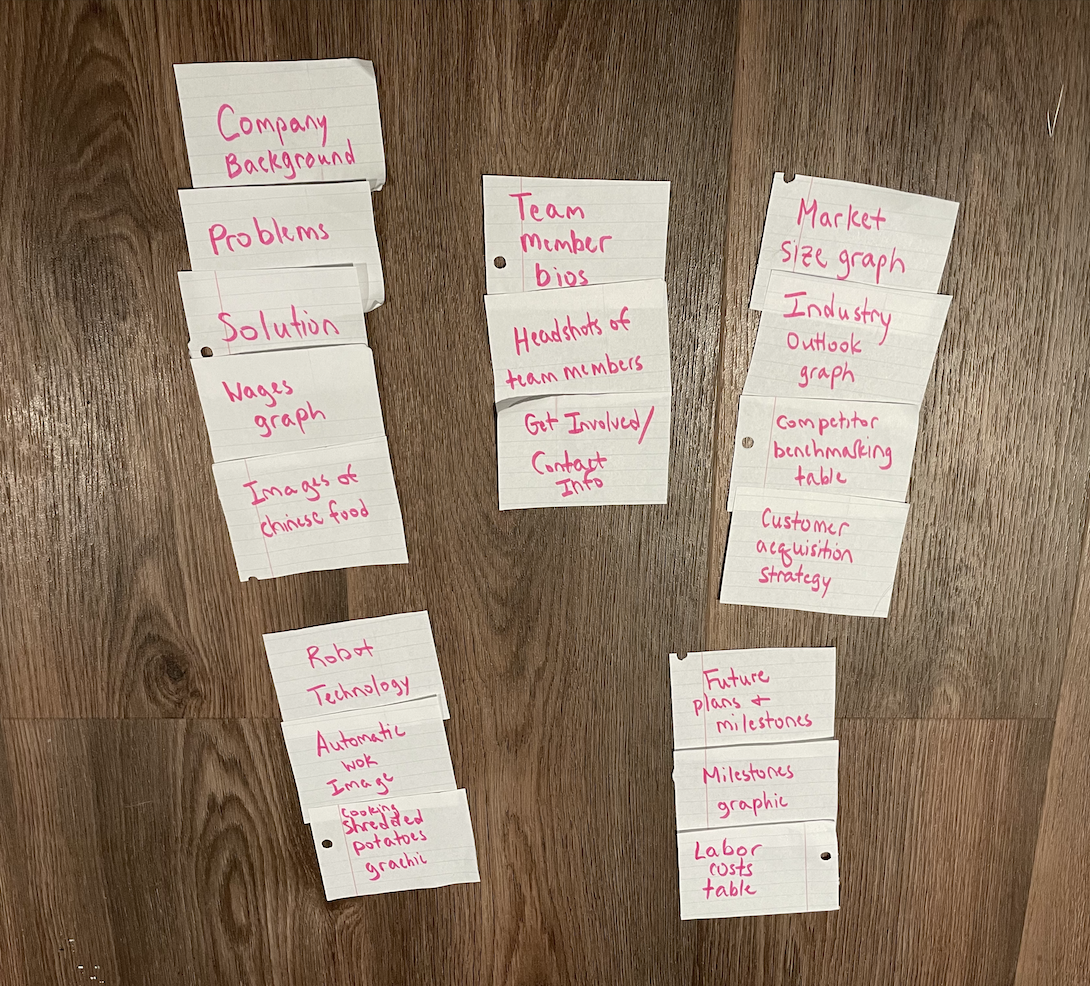 Company
Background
Problems
Solution
Wages
graph
Images of
chinese food
Team
member
bios
Headshots of
team members
Get Involved/
Contact
Info
Market
size graph
Industry
Outlook
graph
Competitor
benchmarking
table
Customer
acquisition
strategy
Robot
Technology
Automatic
wok
Image
Cooking
Shredded
potatoes
grachic
Future
plans +
milestones
Milestones
graphic
Labor
costs
table